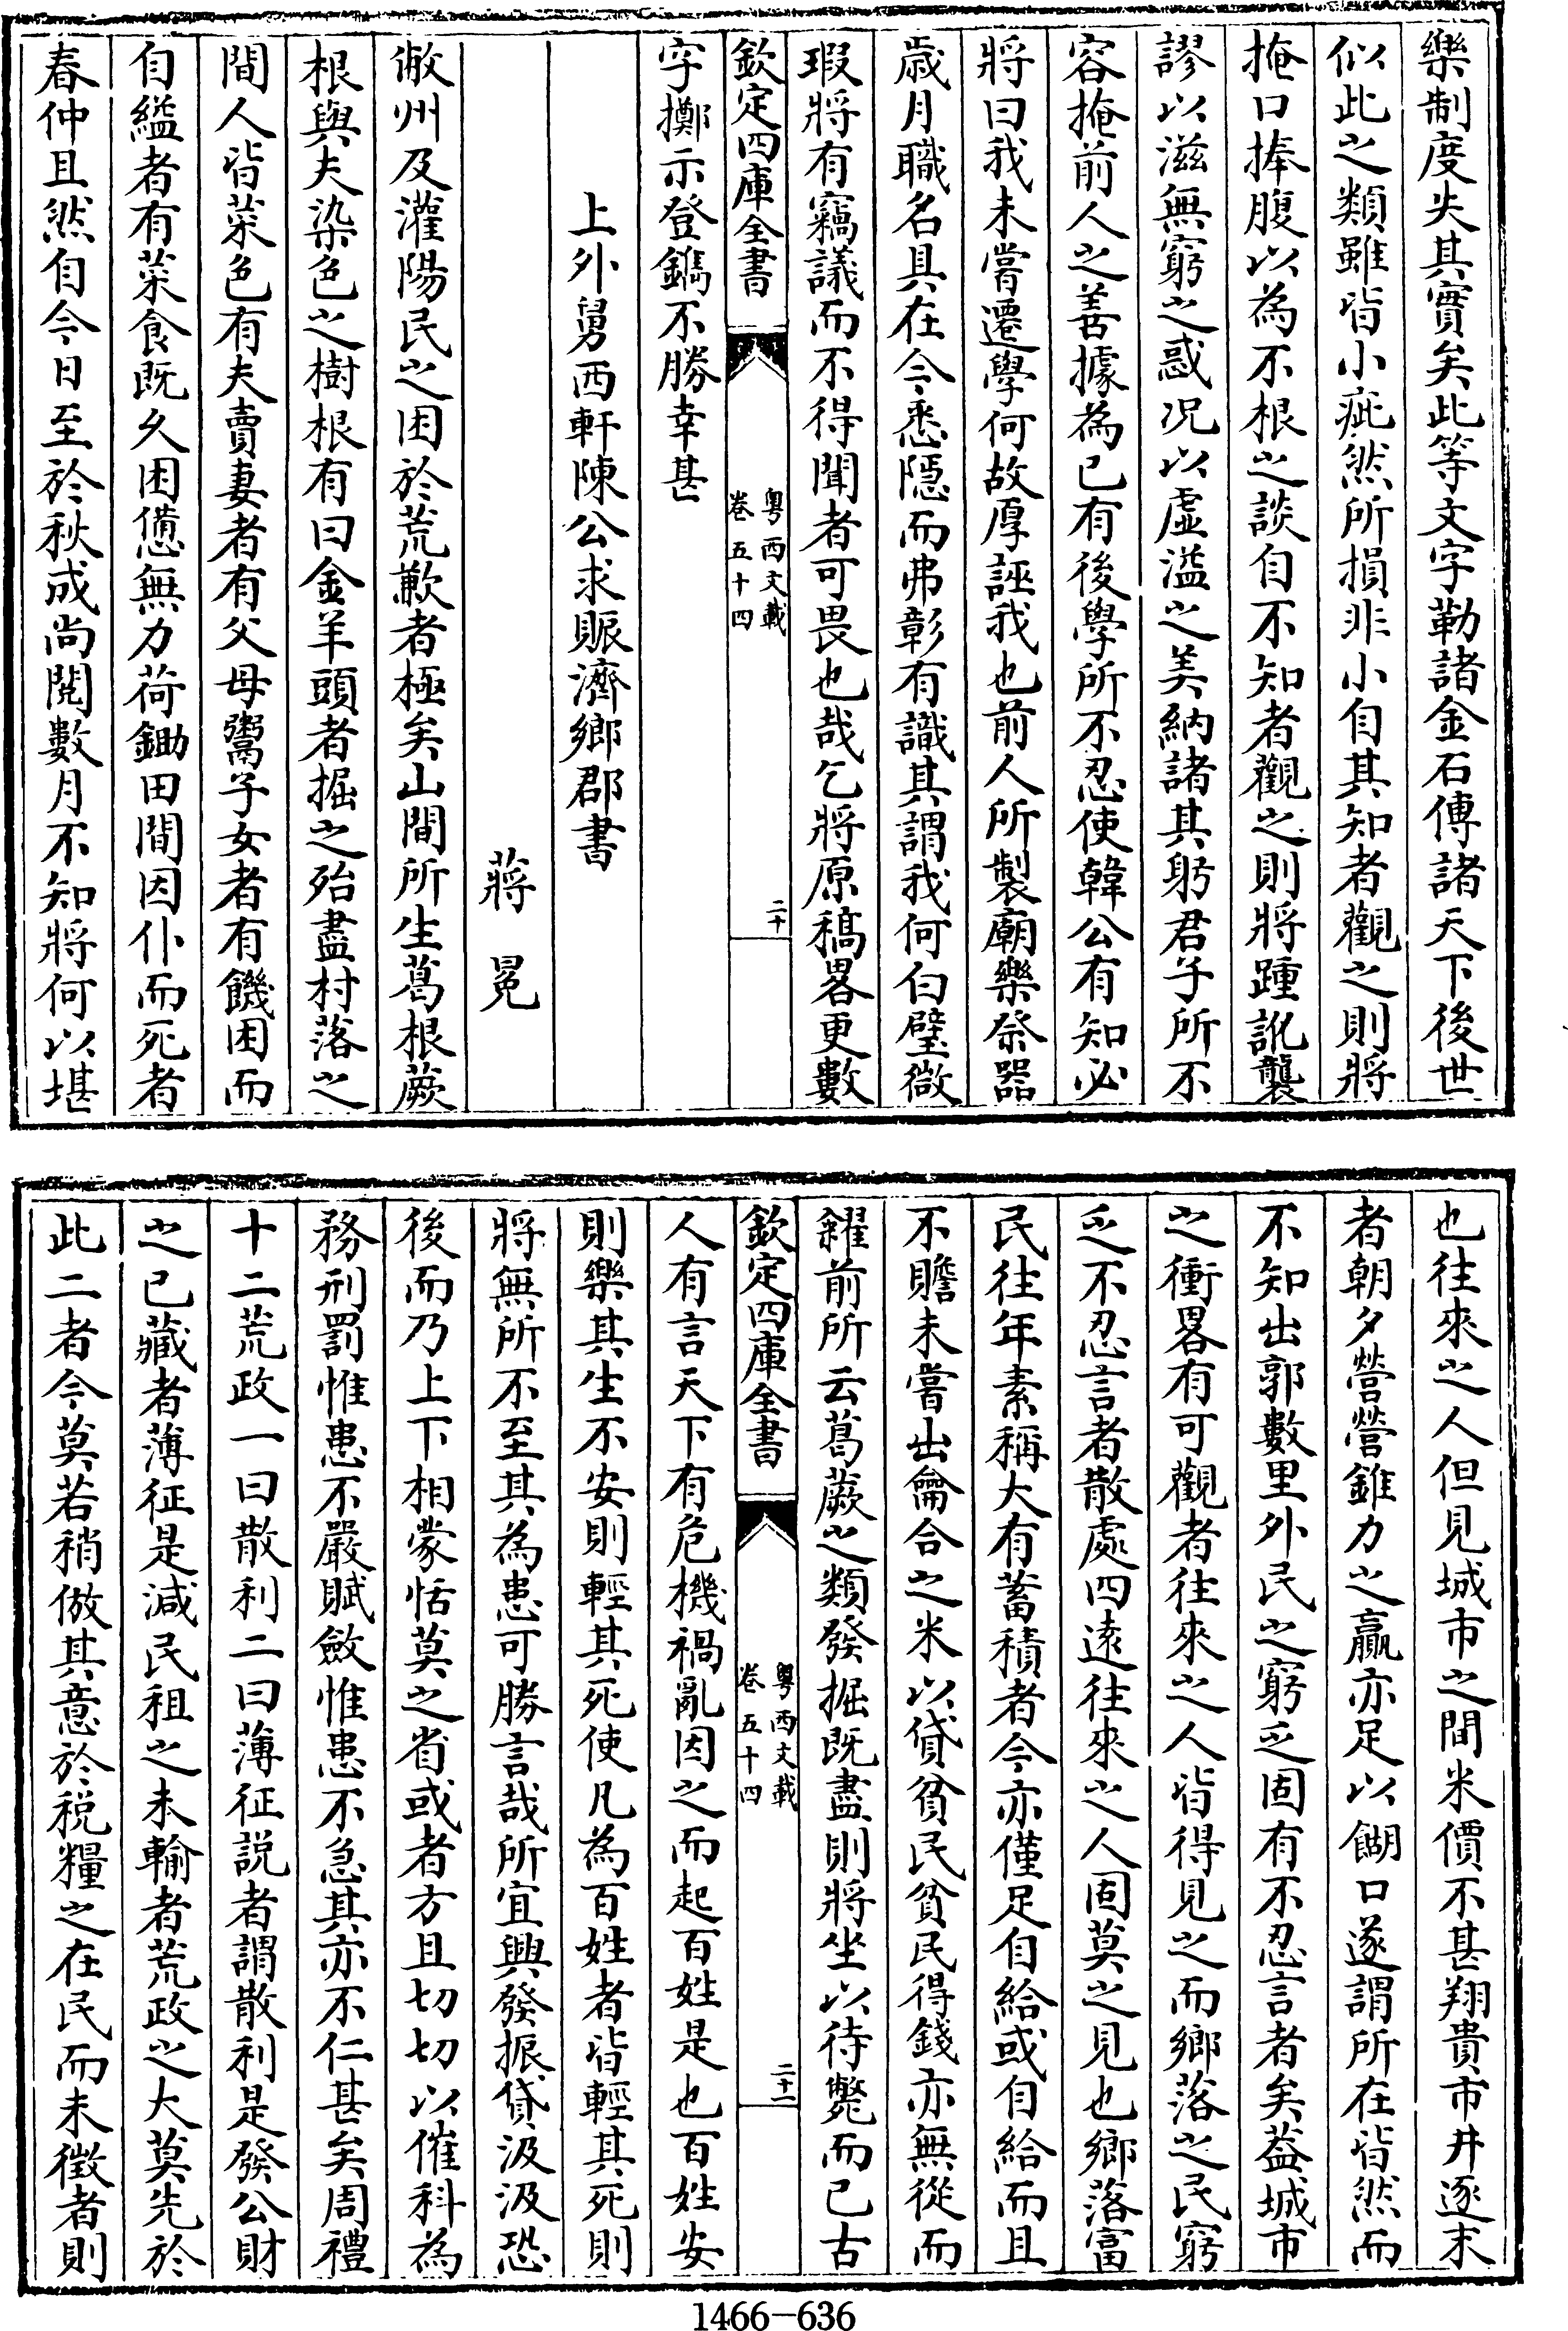 樂制度失其實矣此等文字勒諸金石傳諸天下後世
似此之類雖皆小疵然所損非小自其知者觀之則將
掩口捧腹以為不根之談自不知者觀之則將踵訛襲
謬以滋無窮之惑况以虛溢之美納諸其躬君子所不
容掩前人之善據為己有後學所不忍使韓公有知必
將曰我未嘗遷學何故厚誣我也前人所製廟樂祭器
歲月職名具在今悉隱而弗彰有識其謂我何白璧微
瑕將有竊議而不得聞者可畏也哉乞將原稿畧更數
欽定四庫全書
粤西文載
卷五十四
二十
字擲示登鐫不勝幸甚
上外舅西軒陳公求賑濟鄉郡書
蔣冕
敝州及灌陽民之困於荒歉者極矣山間所生葛根蕨
根與夫染色之樹根有曰金羊頭者掘之殆盡村落之
間人皆菜色有夫賣妻者有父母鬻子女者有饑困而
自縊者有菜食既久困憊無力荷鋤田間因仆而死者
春仲且然自今日至於秋成尚閱數月不知將何以堪
也往來之人但見城市之間米價不甚翔貴市井逐末
者朝夕營營錐力之贏亦足以餬口遂謂所在皆然而
不知出郭數里外民之窮乏固有不忍言者矣葢城市
之衝畧有可觀者往來之人皆得見之而鄉落之民窮
乏不忍言者散處四遠往來之人固莫之見也鄉落富
民往年素稱大有蓄積者今亦僅足自給或自給而且
不贍未嘗出龠合之米以貸貧民貧民得錢亦無從而
糴前所云葛蕨之類發掘既盡則將坐以待斃而已古
欽定四庫全書
粤西文載
卷五十四
二十一
人有言天下有危機禍亂因之而起百姓是也百姓安
則樂其生不安則輕其死使凡為百姓者皆輕其死則
將無所不至其為患可勝言哉所宜興發振貸汲汲恐
後而乃上下相蒙恬莫之省或者方且切切以催科為
務刑罰惟患不嚴賦斂惟患不急其亦不仁甚矣周禮
十二荒政一曰散利二曰薄征説者謂散利是發公財
之已藏者薄征是減民租之未輸者荒政之大莫先於
此二者今莫若稍倣其意於税糧之在民而未徵者則
1466-636